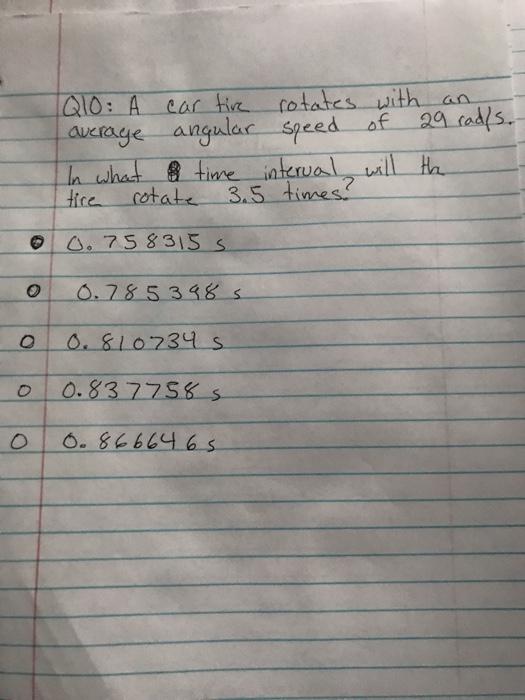 Q10: A car tire rotates with an
average angular speed of 29 rad/s.
In what time interval will the
tire rotate 3.5 times?
0.758315 s
0.785398 s
0.810734 s
0.837758 s
0.866646 s